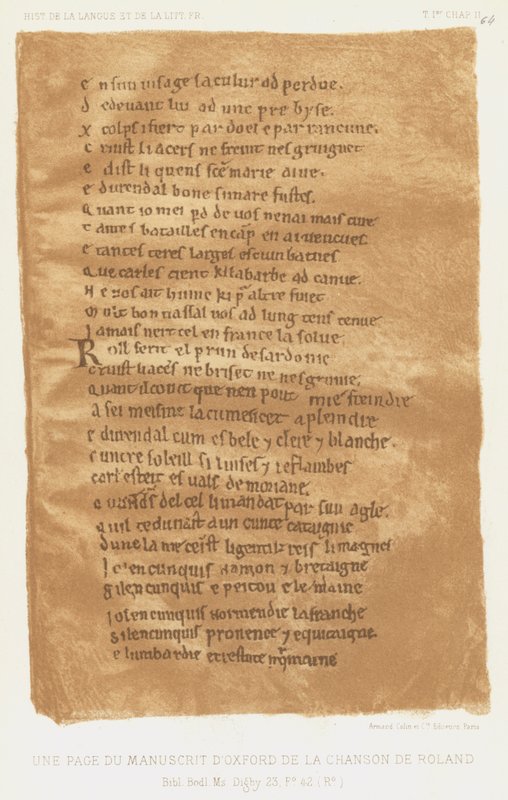 HIST. DE LA LANGUE ET DE LA LITT. FR.
T. Iᵉʳ CHAP. II
64
e n sun uisage sa culur ad perdue.
d edeuant lui ad une pre byse.
x colps ifiert par doel e par rancune.
c ruist li acers ne freint nesgruignet
e dist li quens sc̄e marie aiue.
e durendal bone si mare fustes.
q uant io mei p̄d de uos nenai mais cure
t antes batailles en cāp en ai uencues
e tantes teres larges escumbatues
q ue carles tient ki la barbe ad canue.
N e uos ait hume ki p̄ altre fuiet
m ult bon uassal uos ad lung tens tenue
J amais nert tel en france la solue.
R oll ferit el prun de sardonie
c ruist li acēs ne briset ne nesgrunie.
q uant il co uit que nen pout mie freindre
a sei meisme la cumencet a pleindre
e durendal cum es bele ⁊ clere ⁊ blanche.
c untre soleill si luises ⁊ reflambes
carl esteit es uals de moriane.
q uands̄ del cel li mandat par sun agle.
q uil te dunast a un cunte cataignie
dunc la me ceīst li gentilz reis li magnes
J o len cunquis namon ⁊ bretaigne
s ilen cunquis e peitou e le maine
J o len cunquis normendie la franche
s ilen cunquis prouence ⁊ equitaigne
e lumbardie et trestute romaine
Armand Colin et Cⁱᵉ Editeurs Paris
UNE PAGE DU MANUSCRIT D'OXFORD DE LA CHANSON DE ROLAND
Bibl. Bodl. Ms. Digby 23, Fº 42 (Rº)